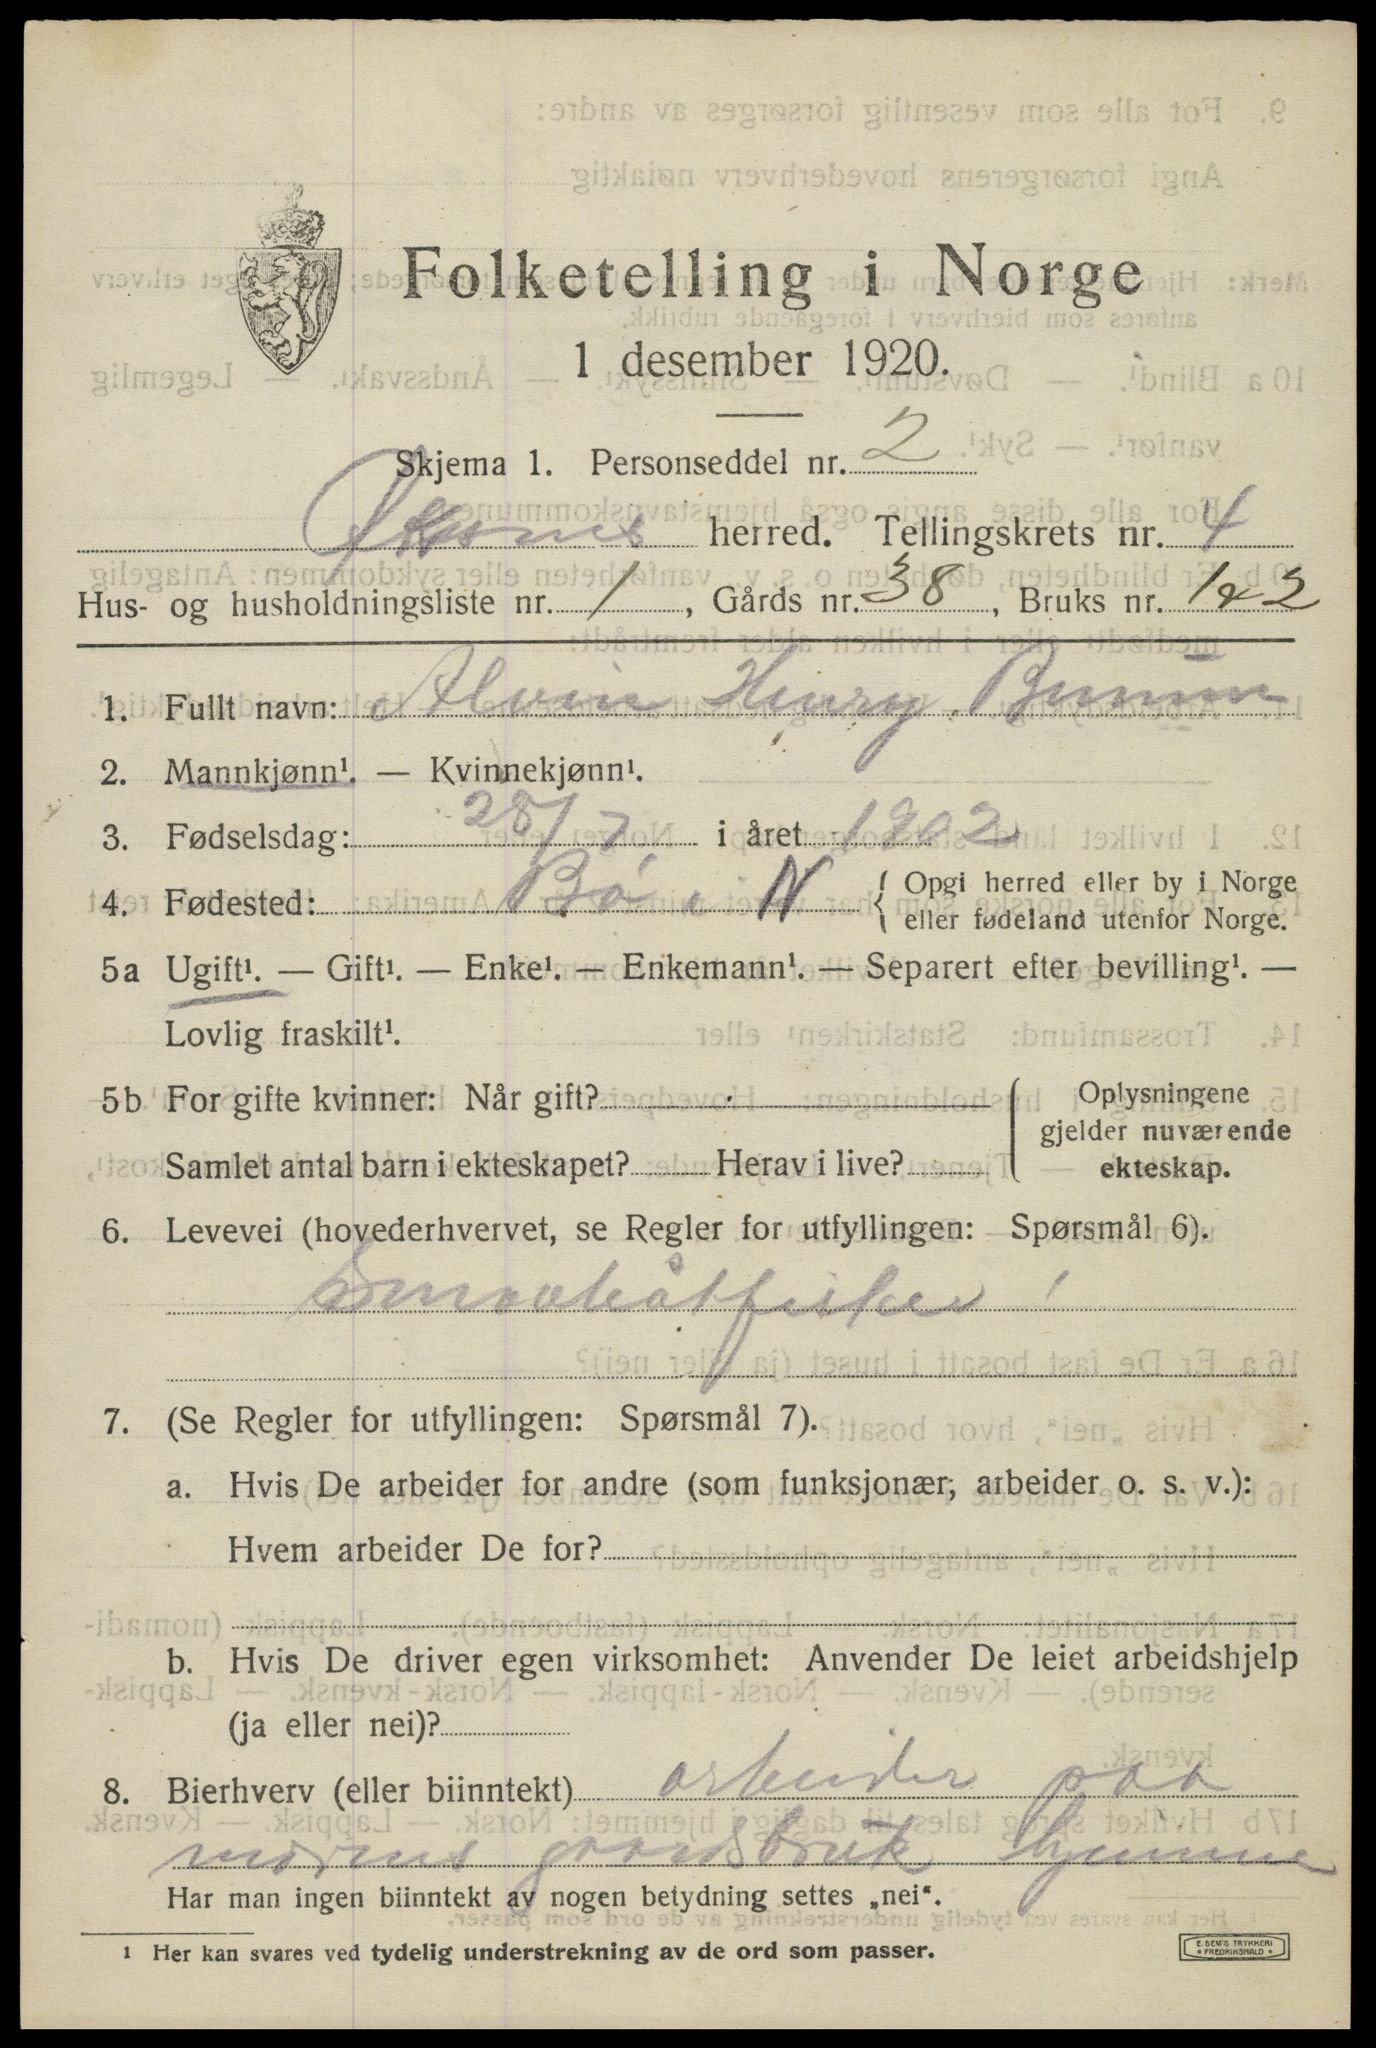 Folketelling i Norge
1 desember 1920.
Skjema 1. Personseddel nr. 2
herred. Tellingskrets nr. 4
Hus- og husholdningsliste nr. 1, Gårds nr. 38, Bruks nr. 1&2
1. Fullt navn: Alvin Henry
2. Mannkjønn¹. — Kvinnekjønn¹.
3. Fødselsdag: 28/7 i året 1902
4. Fødested: Bø i N { Opgi herred eller by i Norge
eller fødeland utenfor Norge.
5a Ugift¹. — Gift¹. — Enke¹. — Enkemann¹. — Separert efter bevilling¹. —
Lovlig fraskilt¹.
5b For gifte kvinner: Når gift?
Samlet antal barn i ekteskapet? Herav i live?
Oplysningene
gjelder nuværende
ekteskap.
6. Levevei (hovederhvervet, se Regler for utfyllingen: Spørsmål 6).
Smaabåtfisker
7. (Se Regler for utfyllingen: Spørsmål 7).
a. Hvis De arbeider for andre (som funksjonær, arbeider o. s. v.):
Hvem arbeider De for?
b. Hvis De driver egen virksomhet: Anvender De leiet arbeidshjelp
(ja eller nei)?
8. Bierhverv (eller biinntekt) arbeider paa
morens gaardsbruk hjemme
Har man ingen biinntekt av nogen betydning settes „nei“.
¹ Her kan svares ved tydelig understrekning av de ord som passer.
E. SEM'S TRYKKERI
FREDRIKSHALD